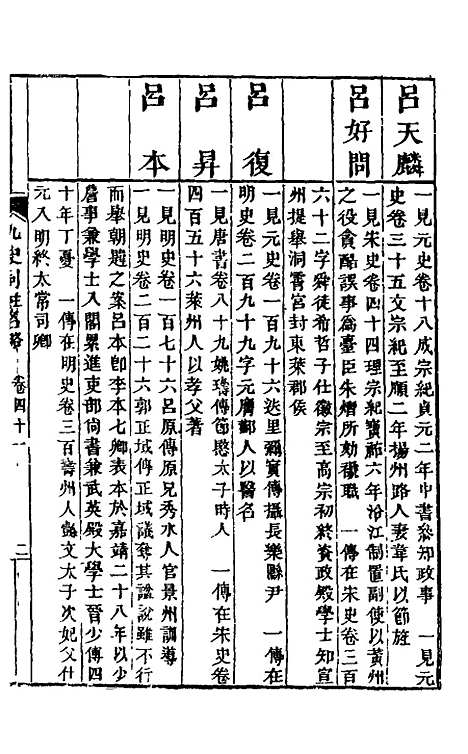 呂天麟
一見元史卷十八成宗紀貞元二年中書參知政事　一見元
史卷三十五文宗紀至順二年揚州路人妻韋氏以節旌
呂好問
一見宋史卷四十四理宗紀寶祐六年沿江制置副使以黃州
之役貪酷誤事爲臺臣朱熠所劾褫職　一傳在宋史卷三百
六十二字舜徒希哲子仕徽宗至高宗初終資政殿學士知宣
州提舉洞霄宮封東萊郡侯
呂復
一見元史卷一百九十六迭里彌實傳攝長樂縣尹　一傳在
明史卷二百九十九字元膺鄞人以醫名
呂昇
一見唐書卷八十九姚璹傳節愍太子時人　一傳在宋史卷
四百五十六萊州人以孝父著
呂本
一見明史卷一百七十六呂原傳原兄秀水人官景州訓導
一見明史卷二百二十六郭正域傳正域議奪其諡說雖不行
而舉朝趨之案呂本卽李本七卿表本於嘉靖二十八年以少
詹事兼學士入閣累進吏部尚書兼武英殿大學士晉少傅四
十年丁憂　一傳在明史卷三百壽州人懿文太子次妃父仕
元入明終太常司卿
九史同姓名略
卷四十一
二